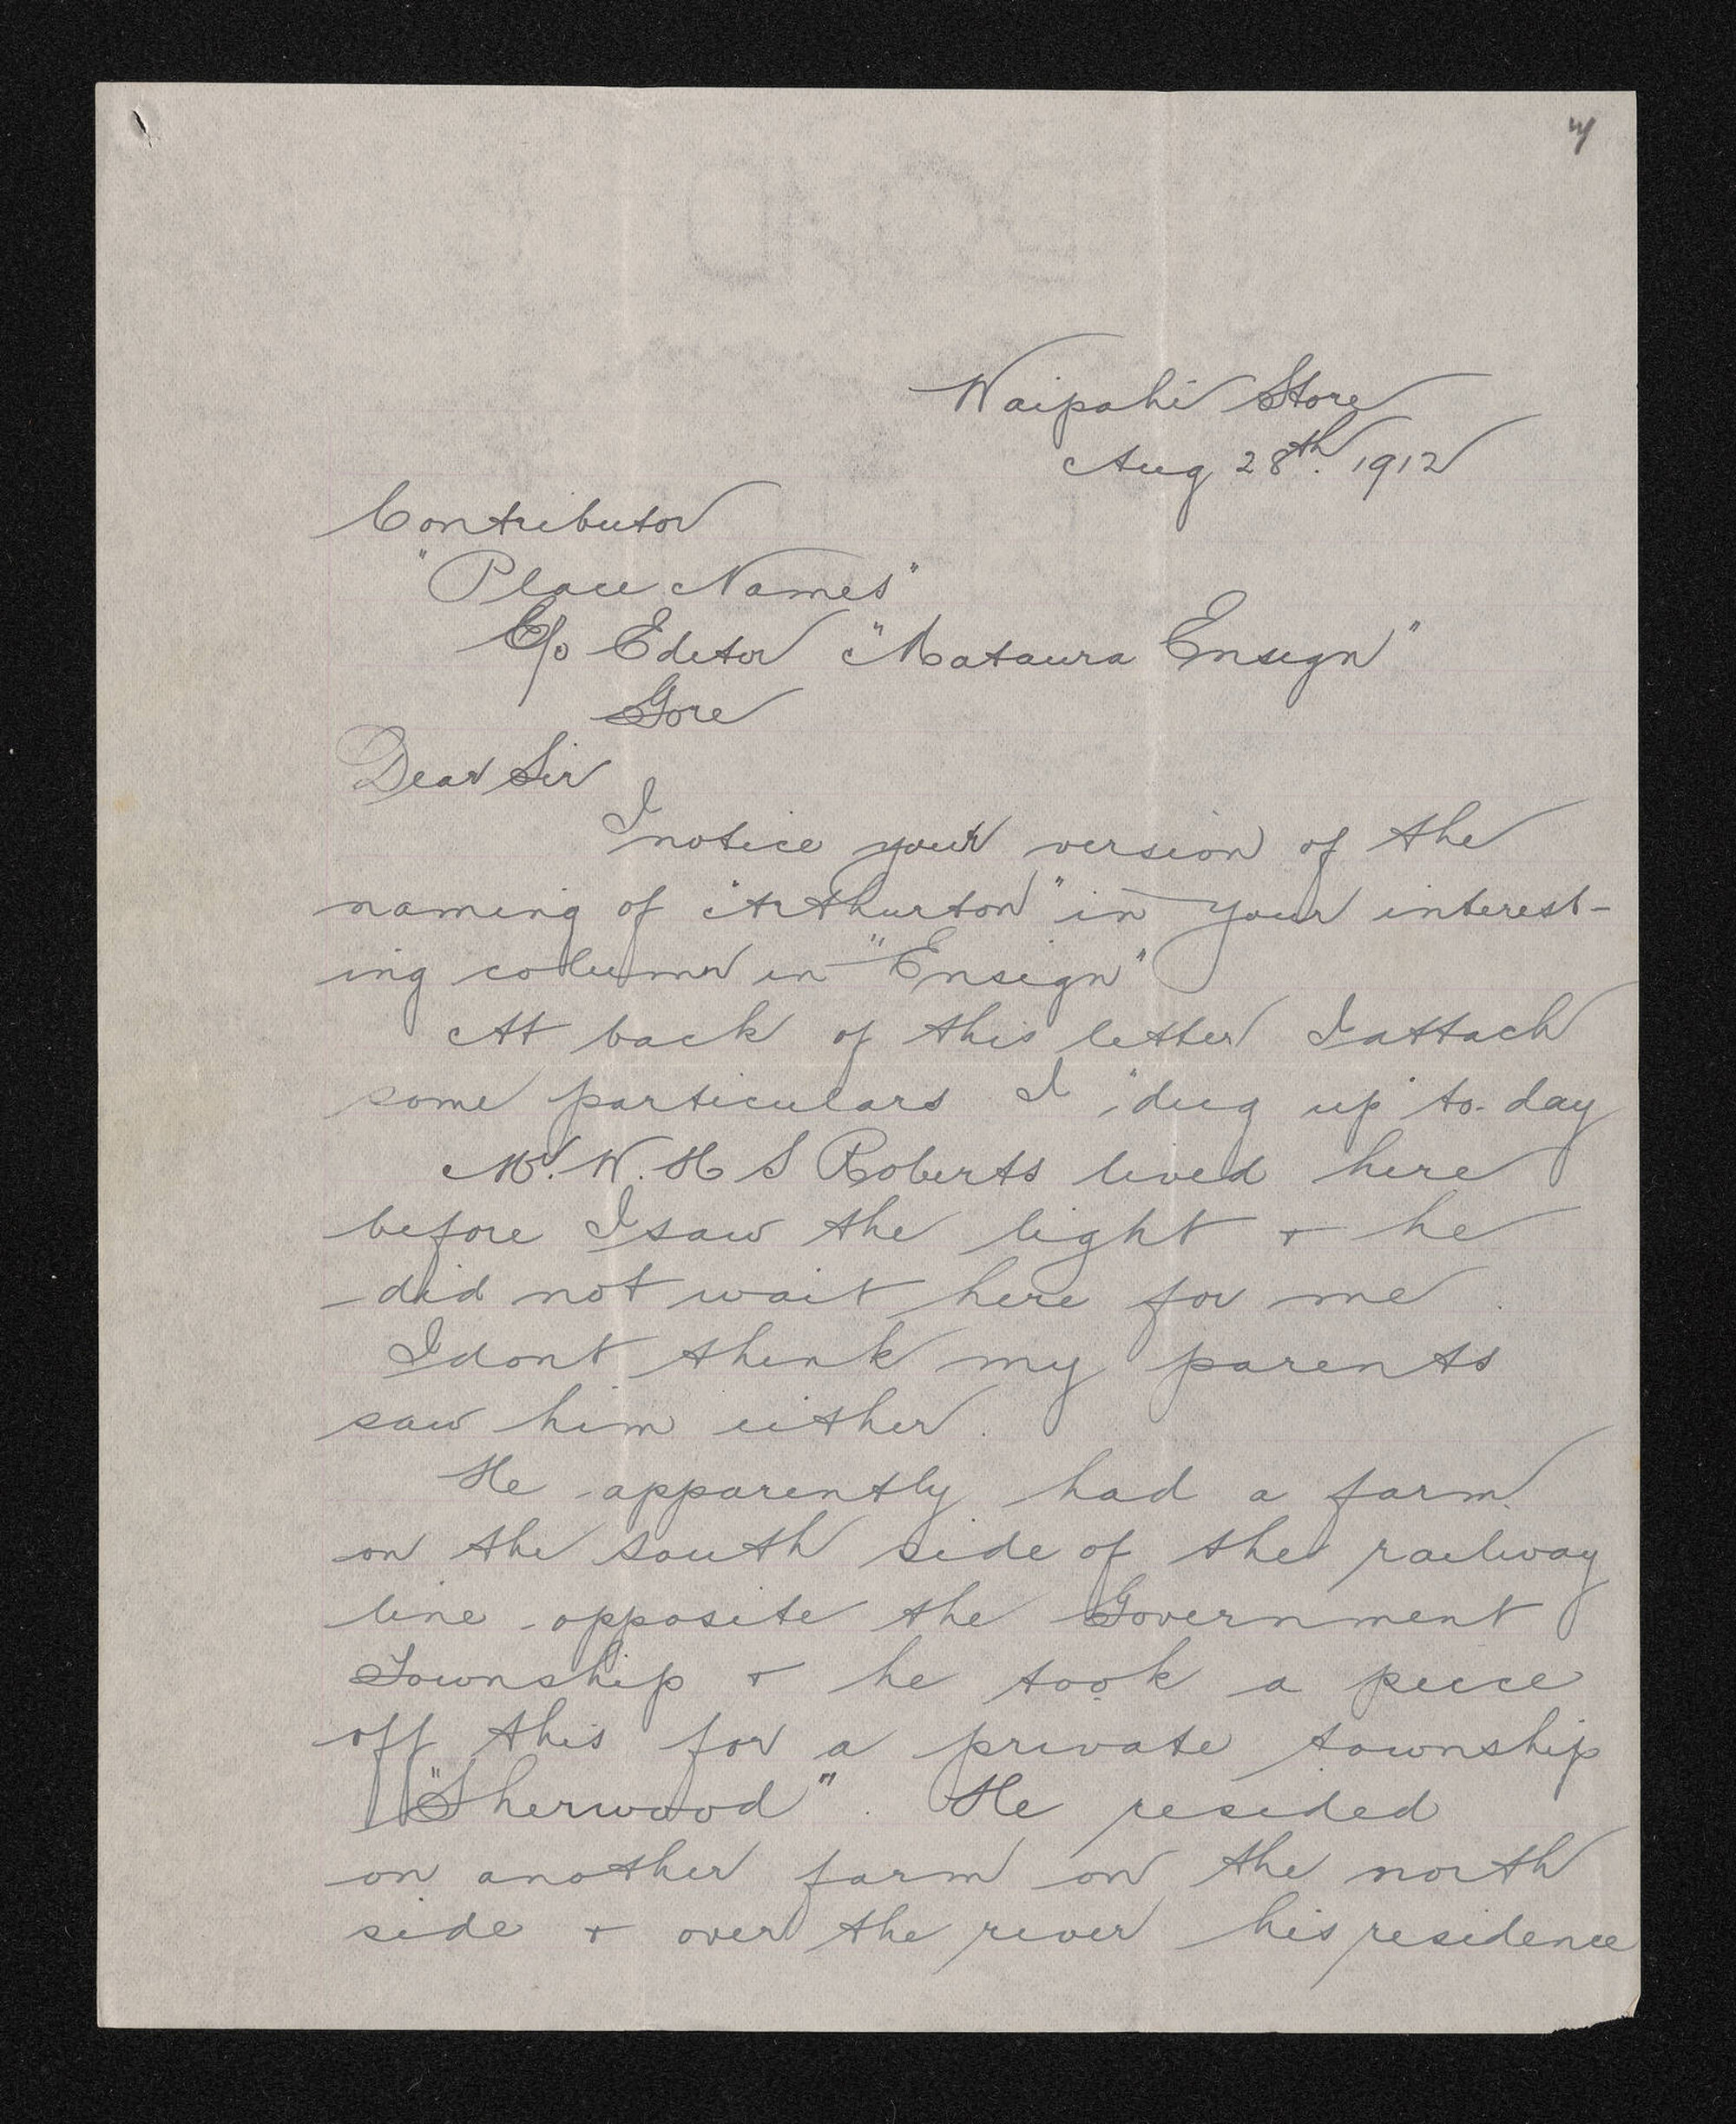 Waipahi Store
Aug 28th. 1912
Contributor
"Place Names"
C/o Editor "Mataura Ensign"
Gore
Dear Sir
I notice your version of the
naming of "Arthurton" in your interest-
ing column in "Ensign"
At back of this letter I attach
some particulars I "dug up" to-day
Mr. W. H S Roberts lived here
before I saw the light + he
did not wait here for me.
I dont think my parents
saw him either.
He apparently had a farm
on the south side of the railway
line opposite the Government
Township + he took a piece
off this for a private township
"Sherwood". He resided
on another farm on the north
side + over the river his residence